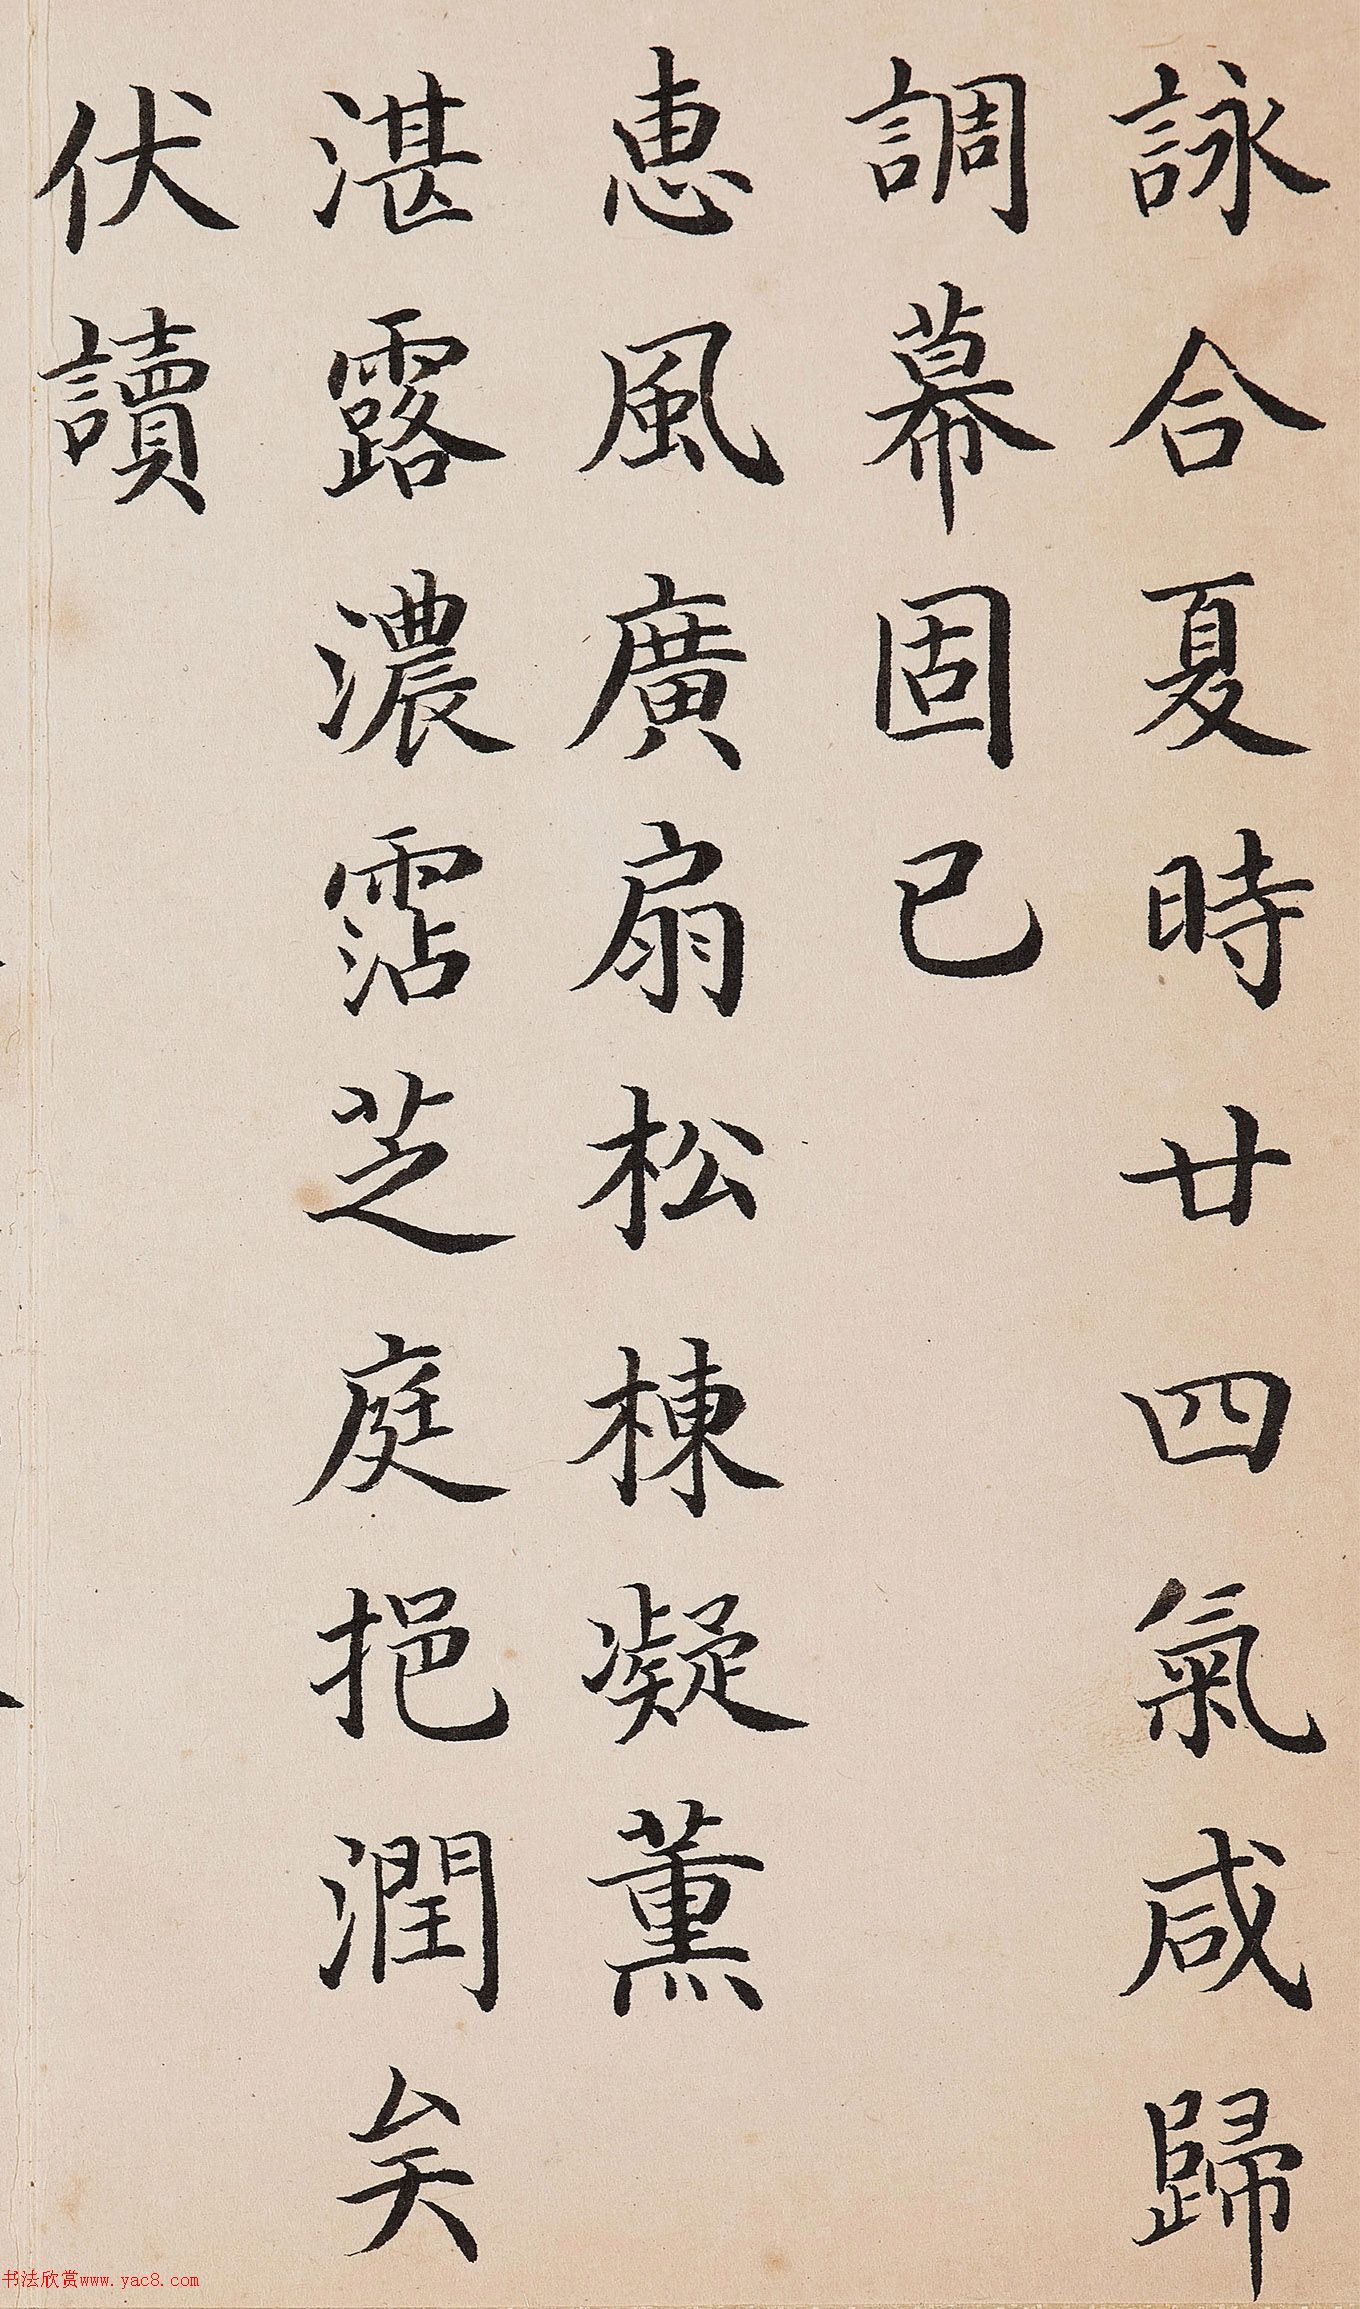 詠合夏時廿四氣咸歸
調幕固已
惠風廣扇松棟凝薰
湛露濃霑芝庭挹潤矣
伏讀
书法欣赏www.yac8.com